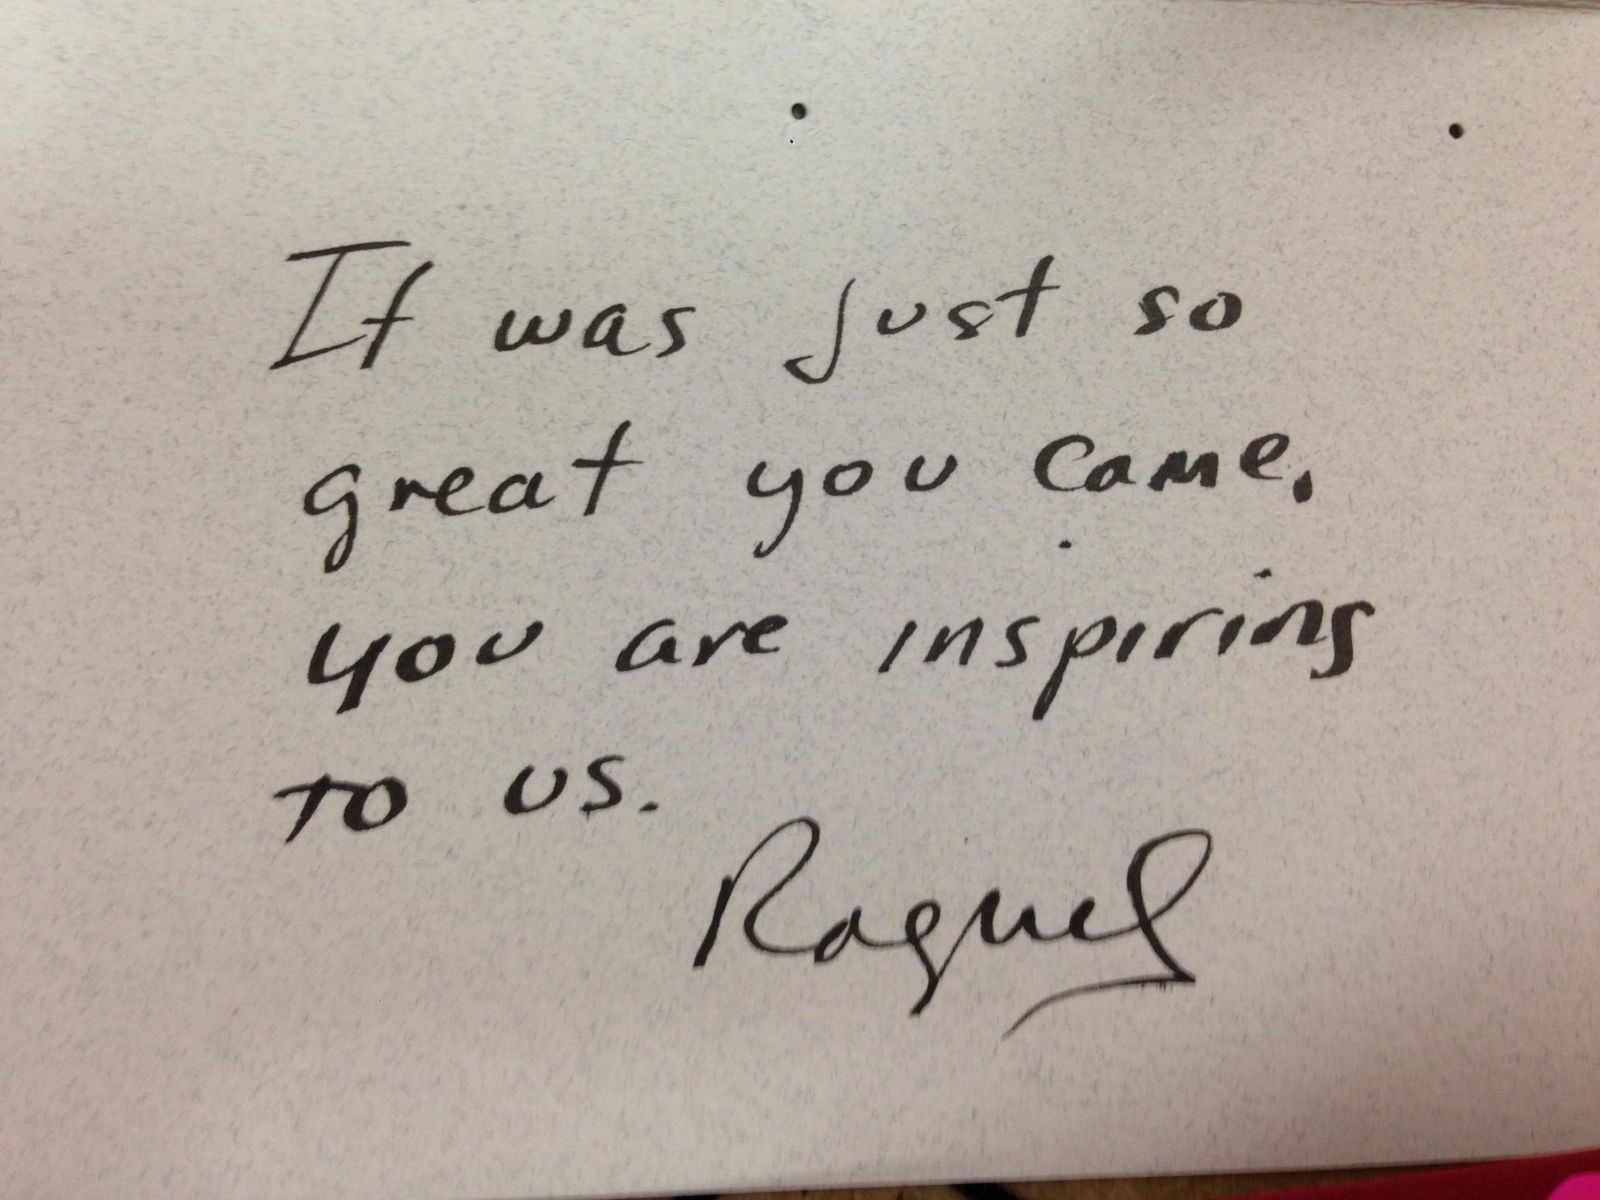 It was just so
great you came.
you are inspiring
to us.
Raquel